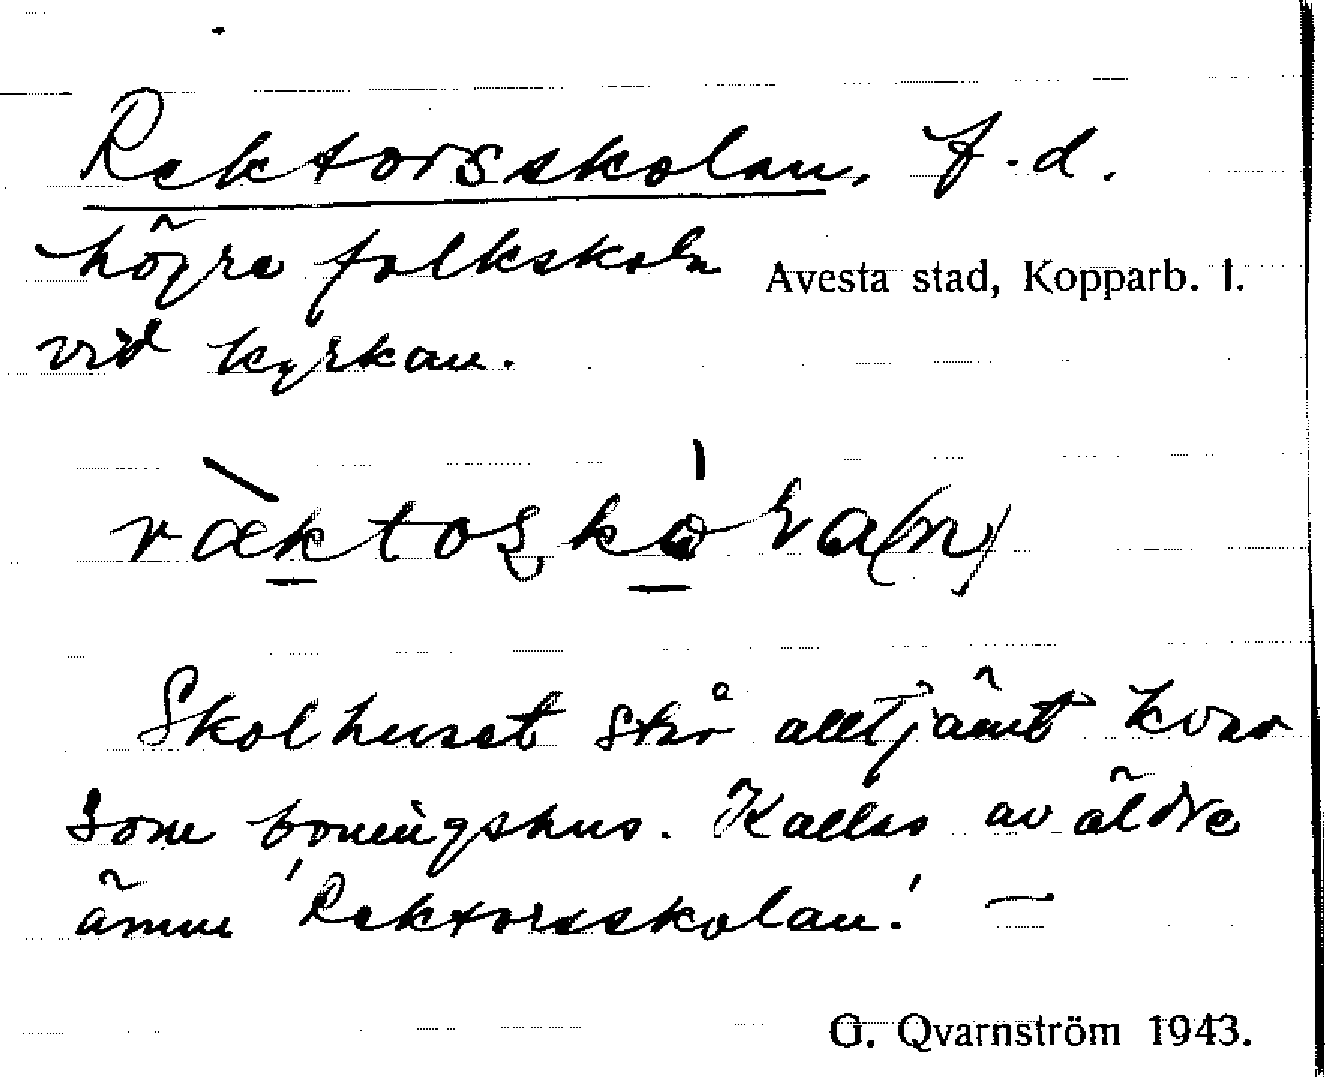 Rektorsskolan, f.d.
högre folkskola
Avesta stad, Kopparb. l.
vid kyrkan.
Skolhuset står alltjämt kvar
som boningshus. Kallas av äldre
ännu 'Rektorsskolan'. —
G. Qvarnström 1943.